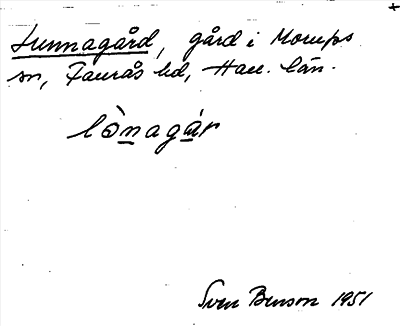 +
Lunnagård, gård i Morups
sn, Faurås hd, Hall. län.
lònagár
Sven Benson 1951